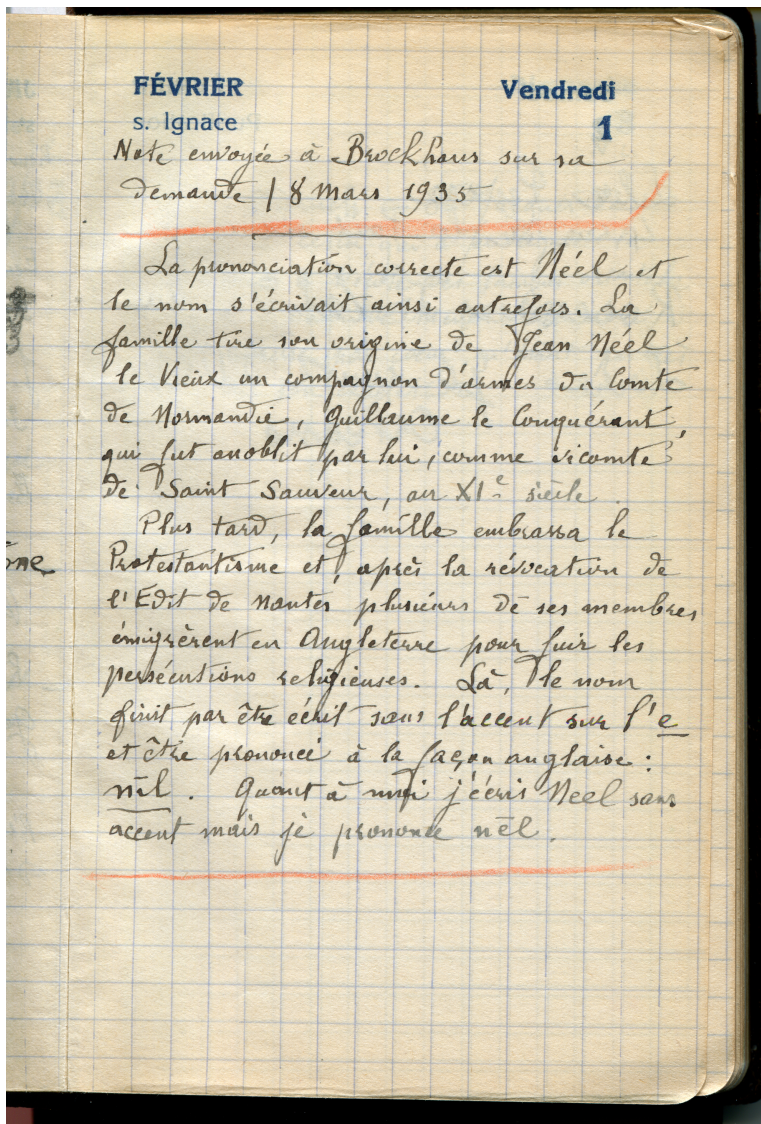 FÉVRIER Vendredi
s. Ignace 1
Note envoyée à Brockhaus sur sa
demande / 8 Mars 1935
La prononciation correcte est Néél et
le nom s'écrivait ainsi autrefois. La
famille tire son origine de Jean Néél
le Vieux un compagnon d'armes du Comte
de Normandie, Guillaume le Conquérant,
qui fut anoblit par lui, comme vicomte
de Saint Sauveur, au XIe siècle.
Plus tard, la famille embrassa le
Protestantisme et, après la révocation de
l'Edit de Nantes plusieurs de ses membres
émigrèrent en Angleterre pour fuir les
persécutions religieuses. Là, le nom
finit par être écrit sans l'accent sur l'e
et être prononcé à la façon anglaise :
nēl. Quant à moi j'écris Neel sans
accent mais je prononce nēl.
ône